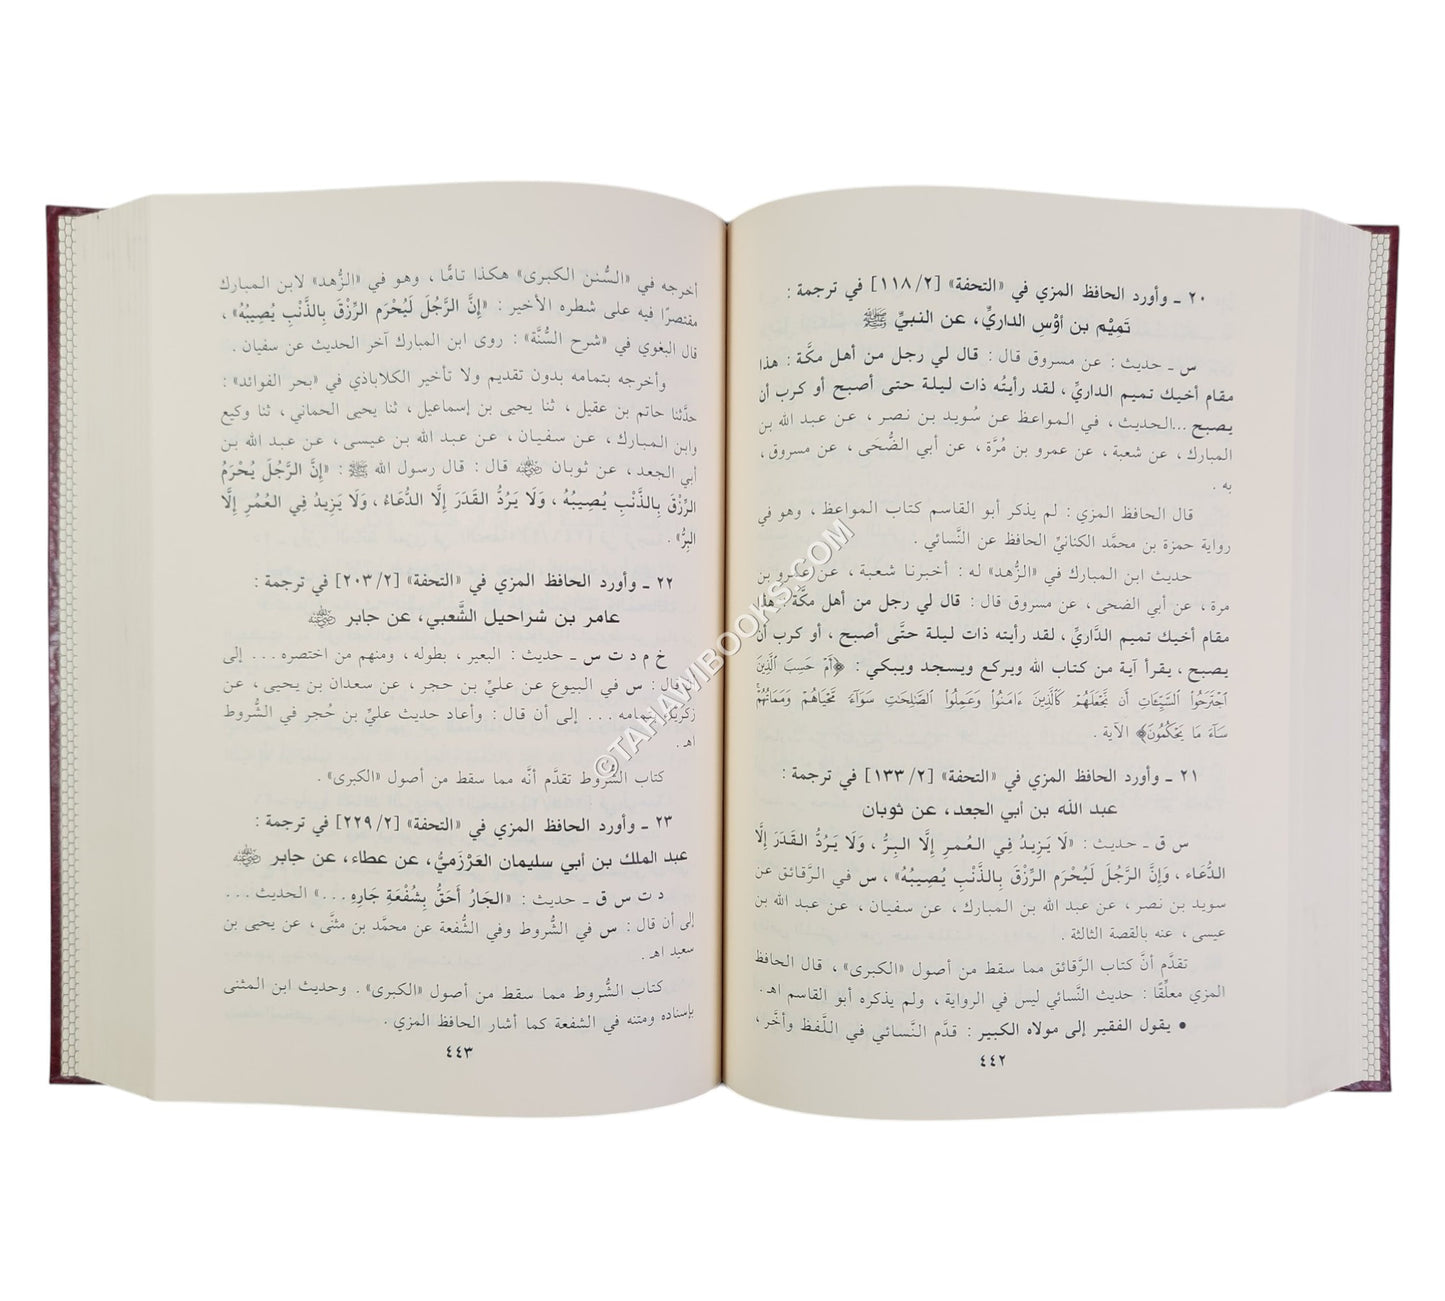 ٢٠ ـ وأورد الحافظ المزي في «التحفة» [١١٨/٢] في ترجمة :
تَمِيْم بن أوْسِ الداريِّ، عن النبيِّ ﷺ
س ـ حديث : عن مسروق قال : قال لي رجل من أهل مكَّة : هذا
مقام أخيك تميم الداريِّ ، لقد رأيتُه ذات ليلة حتى أصبح أو كرب أن
يصبح ...الحديث ، في المواعظ عن سُويد بن نصر ، عن عبد الله بن
المبارك ، عن شعبة ، عن عمرو بن مُرَّة ، عن أبي الضُّحَى ، عن مسروق ،
به .
قال الحافظ المزي : لم يذكر أبو القاسم كتاب المواعظ ، وهو في
رواية حمزة بن محمَّد الكنانيِّ الحافظ عن النَّسائي .
حديث ابن المبارك في «الزُّهد» له : أخبرنا شعبة ، عن عمرو بن
مرة ، عن أبي الضحى ، عن مسروق قال : قال لي رجل من أهل مكَّة : هذا
مقام أخيك تميم الدَّاريِّ ، لقد رأيته ذات ليلة حتَّى أصبح ، أو كرب أن
يصبح ، يقرأ آية من كتاب الله ويركع ويسجد ويبكي : ﴿أَمْ حَسِبَ ٱلَّذِينَ
ٱجْتَرَحُوا۟ ٱلسَّيِّـَٔاتِ أَن نَّجْعَلَهُمْ كَٱلَّذِينَ ءَامَنُوا۟ وَعَمِلُوا۟ ٱلصَّـٰلِحَـٰتِ سَوَآءً مَّحْيَاهُمْ وَمَمَاتُهُمْ ۚ
سَآءَ مَا يَحْكُمُونَ﴾ الآية .
٢١ ـ وأورد الحافظ المزي في «التحفة» [١٣٣/٢] في ترجمة :
عبد الله بن أبي الجعد، عن ثوبان
س ق ـ حديث : «لَا يَزِيدُ فِي العُمرِ إِلَّا البِرُّ ، وَلَا يَرُدُّ القَدَرَ إِلَّا
الدُّعَاء ، وَإِنَّ الرَّجُلَ لَيُحْرَم الرِّزْقَ بِالذَّنْبِ يُصِيبُهُ» ، س في الرَّقائق عن
سويد بن نصر ، عن عبد الله بن المبارك ، عن سفيان ، عن عبد الله بن
عيسى ، عنه بالقصة الثالثة .
تقدَّم أنَّ كتاب الرَّقائق مما سقط من أصول «الكبرى» ، قال الحافظ
المزي معلِّقًا : حديث النَّسائي ليس في الرواية ، ولم يذكره أبو القاسم اهـ .
• يقول الفقير إلى مولاه الكبير : قدَّم النَّسائي في اللَّفظ وأخَّر ،
٤٤٢
أخرجه في «السُّنن الكبرى» هكذا تامًّا ، وهو في «الزُّهد» لابن المبارك
مقتصرًا فيه على شطره الأخير : «إِنَّ الرَّجُلَ لَيُحْرَم الرِّزْقَ بِالذَّنْبِ يُصِيبُهُ» ،
قال البغوي في «شرح السُّنَّة» : روى ابن المبارك آخر الحديث عن سفيان .
وأخرجه بتمامه بدون تقديم ولا تأخير الكلاباذي في «بحر الفوائد» :
حدَّثنا حاتم بن عقيل ، ثنا يحيى بن إسماعيل ، ثنا يحيى الحماني ، ثنا وكيع
وابن المبارك ، عن سفيان ، عن عبد الله بن عيسى ، عن عبد الله بن
أبي الجعد ، عن ثوبان رضي الله عنه قال : قال رسول الله ﷺ : «إِنَّ الرَّجُلَ يُحْرَمُ
الرِّزْقَ بِالذَّنْبِ يُصِيبُهُ ، وَلَا يَرُدُّ القَدَرَ إِلَّا الدُّعَاءُ ، وَلَا يَزِيدُ فِي العُمُرِ إِلَّا
البِرُّ» .
٢٢ ـ وأورد الحافظ المزي في «التحفة» [٢٠٣/٢] في ترجمة :
عامر بن شراحيل الشَّعبي، عن جابر رضي الله عنه
خ م د ت س ـ حديث : البعير ، بطوله ، ومنهم من اختصره ... إلى
قال : س في البيوع عن عليِّ بن حجر ، عن سعدان بن يحيى ، عن
زكريا بتمامه ... إلى أن قال : وأعاد حديث عليِّ بن حُجر في الشُّروط
اهـ .
كتاب الشُّروط تقدَّم أنَّه مما سقط من أصول «الكبرى» .
٢٣ ـ وأورد الحافظ المزي في «التحفة» [٢٢٩/٢] في ترجمة :
عبد الملك بن أبي سليمان العَرْزَميُّ، عن عطاء، عن جابر رضي الله عنه
د ت س ق ـ حديث : «الجَارُ أَحَقُّ بِشُفْعَةِ جَارِهِ ...» الحديث ...
إلى أن قال : س في الشُّروط وفي الشُّفعة عن محمَّد بن مثنَّى ، عن يحيى بن
سعيد اهـ .
كتاب الشُّروط مما سقط من أصول «الكبرى» . وحديث ابن المثنى
بإسناده ومتنه في الشفعة كما أشار الحافظ المزي .
٤٤٣
©TAHAWIBOOKS.COM